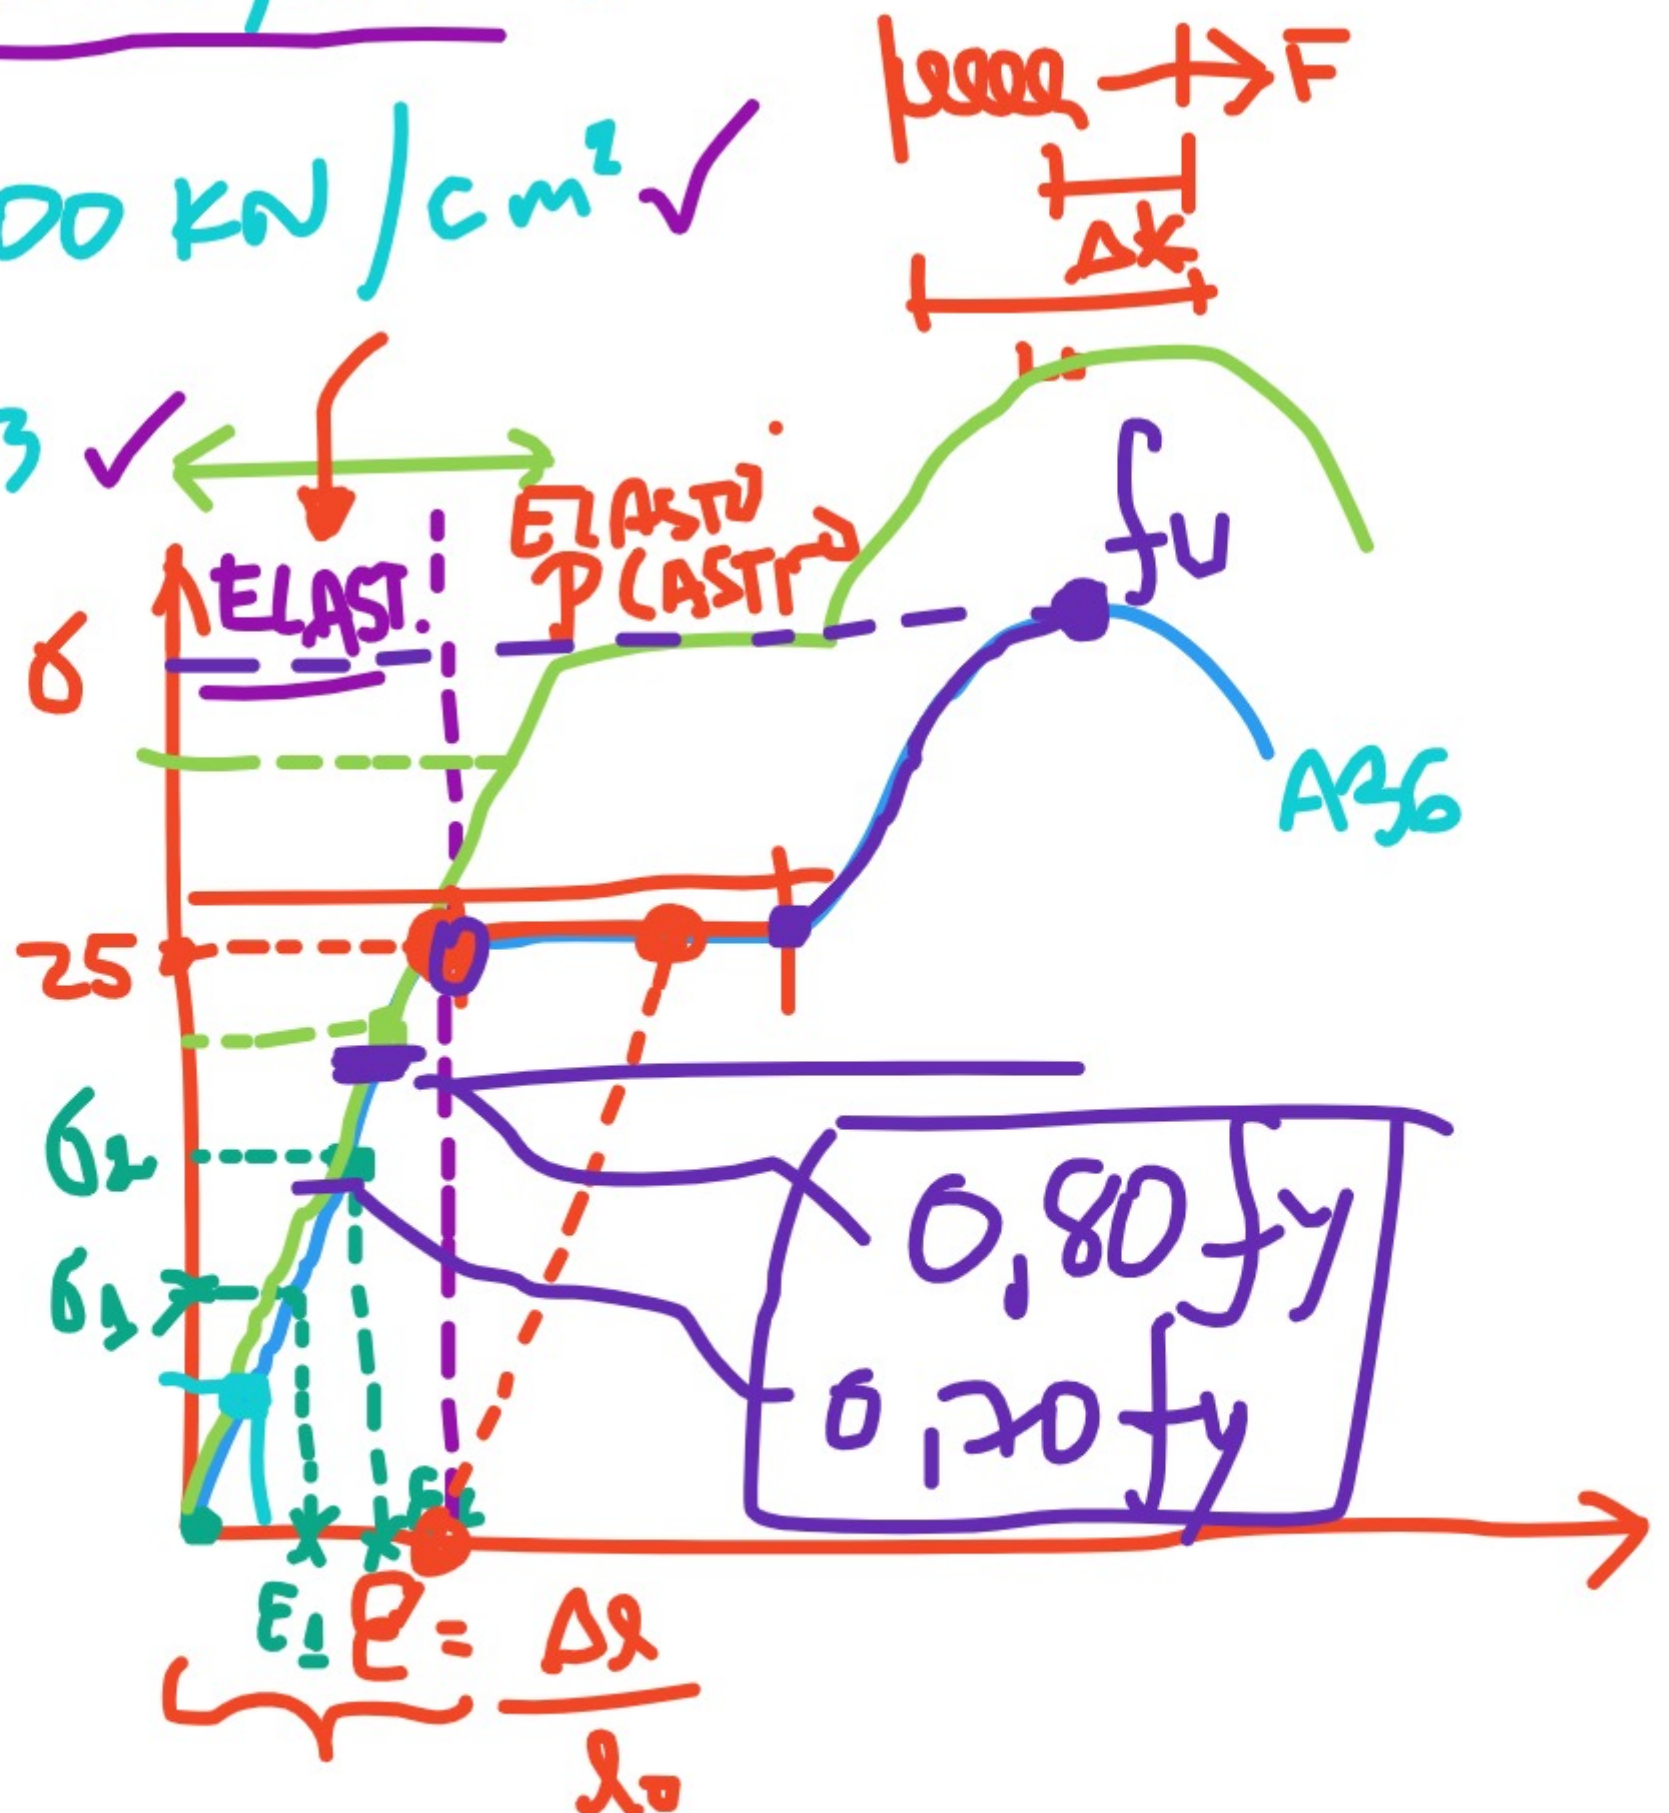 F
00 KN/cm²
ΔX
3
ELAST.
ELASTO
PLASTI
σ
fu
A36
25
σ2
0,80 fy
σ1
0,70 fy
ε1
ε = Δl / l0